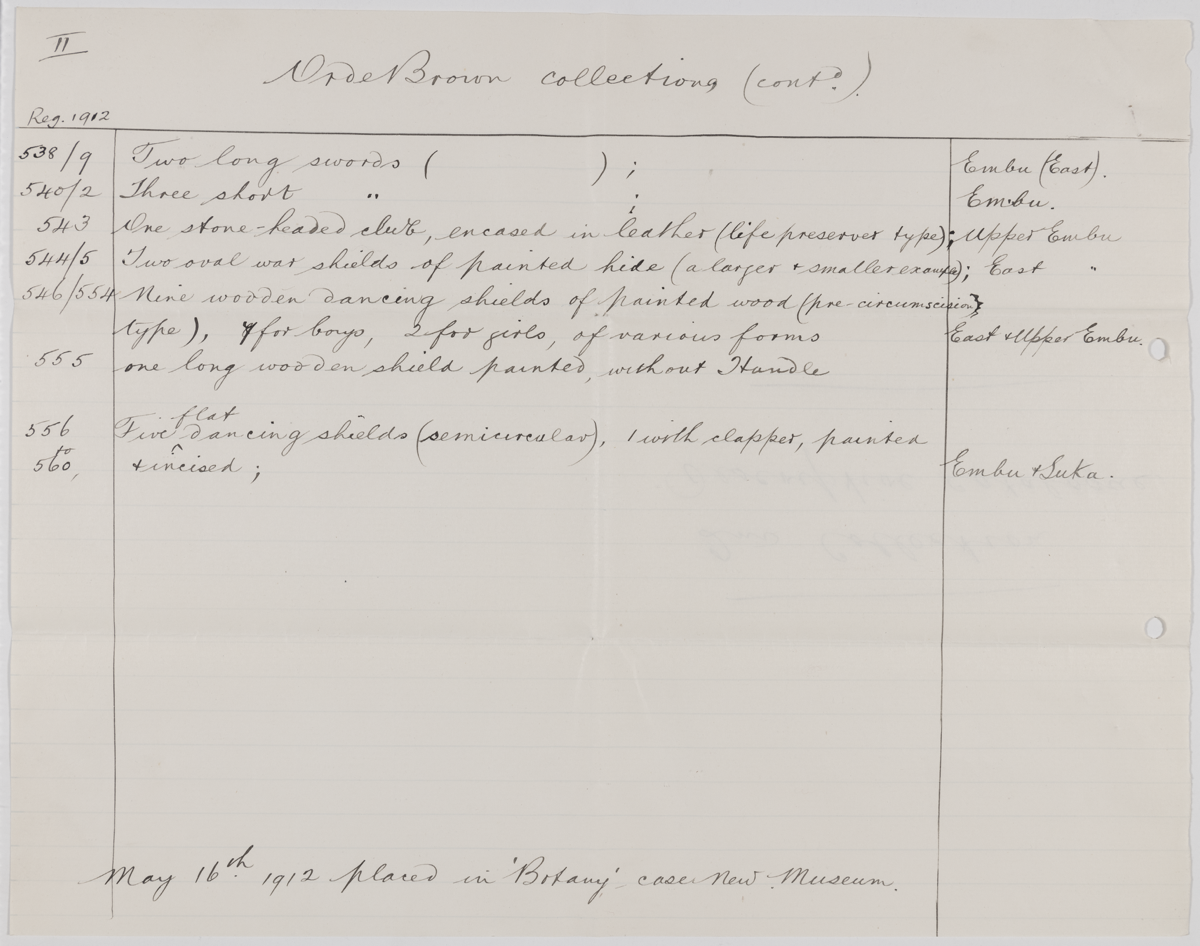 II
Orde Brown collections (contd).
Reg. 1912
538/9 Two long swords (          ) ; Embu (East).
540/2 Three short " ; Embu.
543 One stone-headed club, encased in leather (life preserver type); Upper Embu
544/5 Two oval war shields of painted hide (a larger + smaller example); East "
546/554 Nine wooden dancing shields of painted wood (pre-circumscision
type), 7 for boys, 2 for girls, of various forms East + Upper Embu.
555 one long wooden shield painted, without Handle
556 Five flat dancing shields (semicircular), 1 with clapper, painted
to
560, + incised ; Embu + Suka.
May 16th 1912 placed in 'Botany' case New Museum.